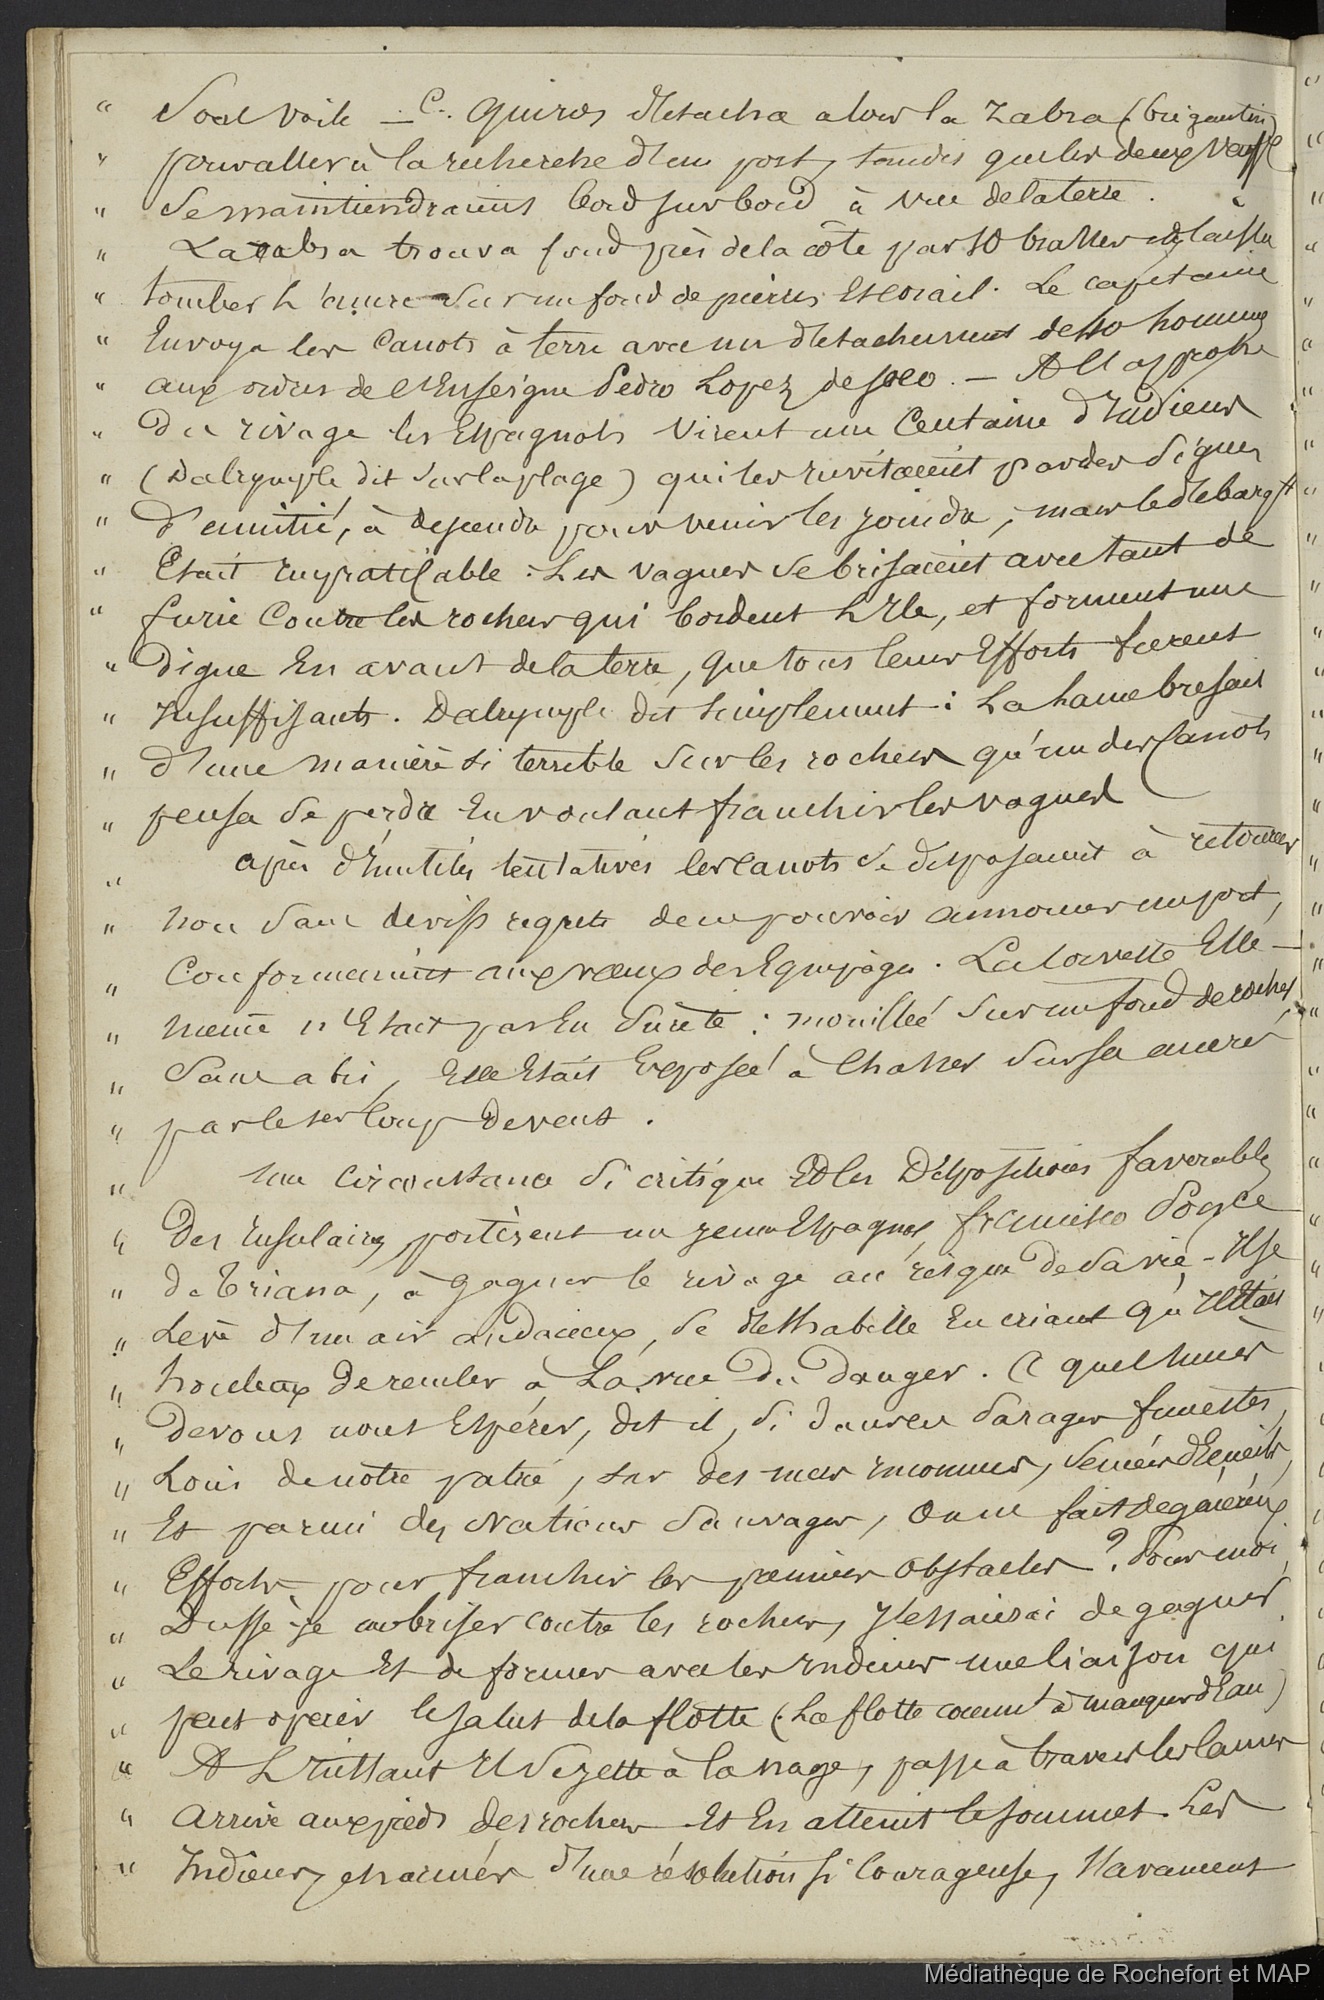 " Soal Voile — C. Quiros détacha alors la Zabra (brigantin)
" pour aller à la recherche d'un port, tandis que les deux vaiss
" se maintiendraient bord sur bord à vue de la terre.
" La Zabra trouva fond près de la côte par 10 brasses et laissa
" tomber l'ancre sur un fond de pierres et corail. Le capitaine
" Envoya les canots à terre avec un détachement de 40 hommes
" aux ordres de l'Enseigne Pedro Lopez de Soco. — A l'approche
" Du rivage les Espagnols virent une Centaine d'Indiens
" (Dalrymple dit sur la plage) qui les invitaient par des signes
" D'amitié, à descendre pour venir les joindre, mais le débarqt
" Etait impraticable : Les vagues se brisaient avec tant de
" furie Contre les rochers qui bordent l'Ile, et forment une
" Digue En avant de la terre, que tous leurs Efforts furent
" Insuffisants. Dalrymple dit simplement : La lame brisait
" d'une manière si terrible sur les rochers qu'un des Canots
" pensa se perdre En voulant franchir les vagues
" après d'inutiles tentatives les canots se disposaient à retourner
" non sans de vifs regrets de ne pouvoir annoncer un port,
" Conformément aux vœux des Equipages. La corvette Elle —
" même n'Etait pas En sûreté : mouillée sur un fond de roches,
" Sans abri, Elle Etait Exposée à Chasser sur sa ancre
" par le 1er coup de vent.
" Une circonstance si critique Et les Dispositions favorables
" Des Insulaires, portèrent un jeune Espagnol, francisco Ponce
" De Triana, à gagner le rivage au risque de sa vie - Il se
" Lève d'un air audacieux, se déshabille En criant qu'Il Etait
" honteux De reculer à La vue Du Danger. A quel succès
" Devons nous Espérer, dit il, si dans ces parages funestes,
" Loin de notre patrie, sur des mers inconnues, semées d'Ecueils,
" Et parmi des Nations sauvages, On ne fait de généreux
" Efforts pour franchir les premiers Obstacles ? Pour moi,
" Dussé-je me briser contre les rochers, J'essaierai de gagner
" Le rivage Et de former avec les Indiens une liaison qui
" peut opérer le salut de la flotte (La flotte commt à manquer d'Eau)
" A L'Instant Il se jette à la nage, passe à travers les lames
" Arrive aux pieds des rochers Et En atteint le sommet. Les
" Indiens, charmés d'une résolution si courageuse, s'avancent
Médiathèque de Rochefort et MAP